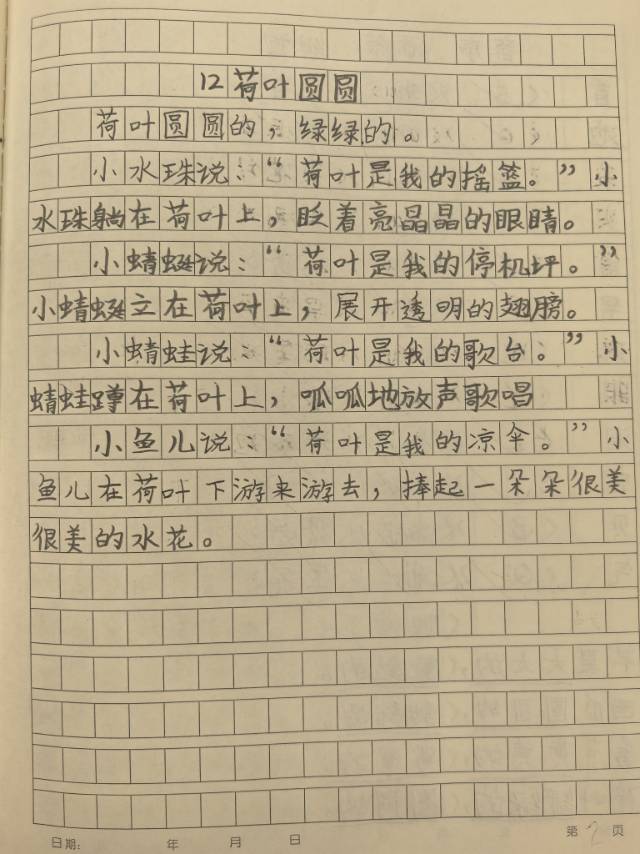 12荷叶圆圆
荷叶圆圆的，绿绿的。
小水珠说：“荷叶是我的摇篮。”小
水珠躺在荷叶上，眨着亮晶晶的眼睛。
小蜻蜓说：“荷叶是我的停机坪。”
小蜻蜓立在荷叶上，展开透明的翅膀。
小蜻蛙说：“荷叶是我的歌台。”小
蜻蛙蹲在荷叶上，呱呱地放声歌唱
小鱼儿说：“荷叶是我的凉伞。”小
鱼儿在荷叶下游来游去，捧起一朵朵很美
很美的水花。
日期： 年 月 日 第2页